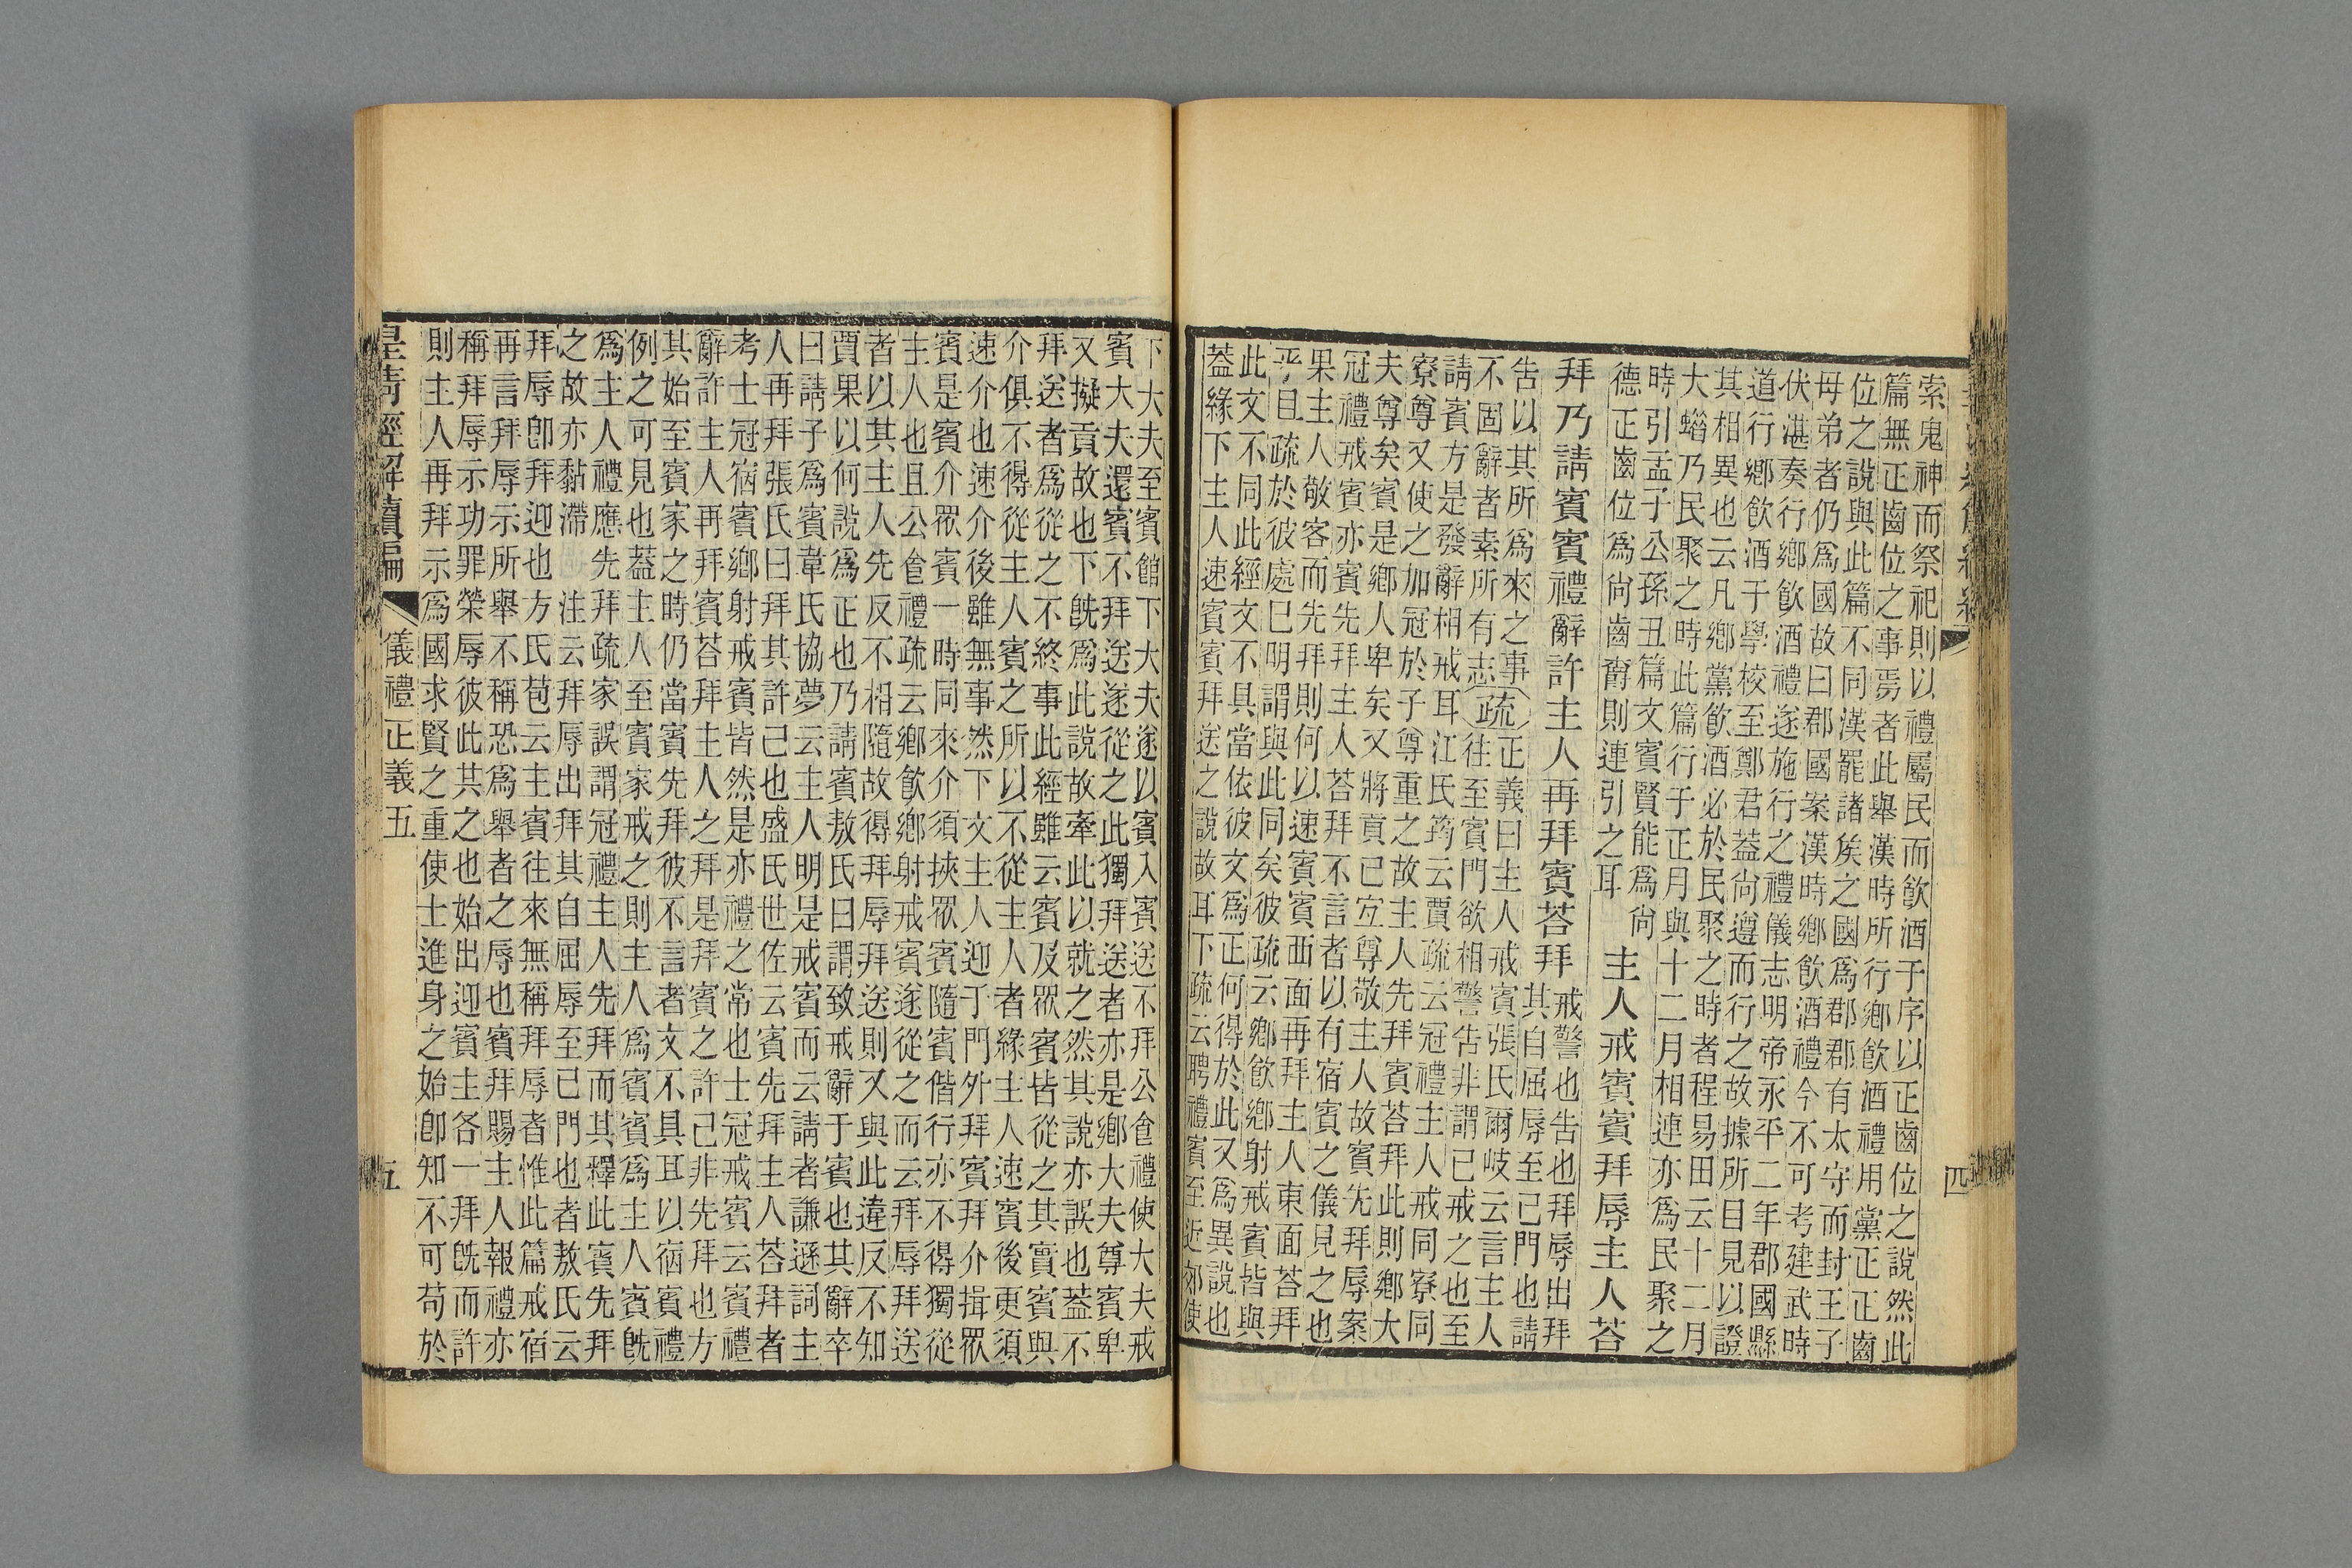 索鬼神而祭祀則以禮屬民而飮酒于序以正齒位之說然此
篇無正齒位之事焉者此舉漢時所行鄕飮酒禮用黨正正齒
位之說與此篇不同漢罷諸侯之國爲郡郡有太守而封王子
母弟者仍爲國故曰郡國案漢時鄕飮酒禮今不可考建武時
伏湛奏行鄕飮酒禮遂施行之禮儀志明帝永平二年郡國縣
道行鄕飮酒于學校至鄭君蓋尙遵而行之故據所目見以證
其相異也云凡鄕黨飮酒必於民聚之時者程易田云十二月
大蜡乃民聚之時此篇行于正月與十二月相連亦爲民聚之
時引孟子公孫丑篇文賓賢能爲尙
德正齒位爲尙齒爵則連引之耳
主人戒賓賓拜辱主人荅
拜乃請賓賓禮辭許主人再拜賓荅拜
戒警也告也拜辱出拜
其自屈辱至已門也請
告以其所爲來之事
不固辭者素所有志
疏
正義曰主人戒賓張氏爾岐云言主人
往至賓門欲相警告非謂已戒之也至
請賓方是發辭相戒耳江氏筠云賈疏云冠禮主人戒同寮同
寮尊又使之加冠於子尊重之故主人先拜賓荅拜此則鄕大
夫尊矣賓是鄕人卑矣又將貢已宐尊敬主人故賓先拜辱案
冠禮戒賓亦賓先拜主人荅拜不言者以有宿賓之儀見之也
果主人敬客而先拜則何以速賓賓西面再拜主人東面荅拜
乎且疏於彼處已明謂與此同矣彼疏云鄕飮鄕射戒賓皆與
此文不同此經文不具當依彼文爲正何得於此又爲異說也
蓋緣下主人速賓賓拜送之說故耳下疏云聘禮賓至近郊使
下大夫至賓館下大夫遂以賓入賓送不拜公食禮使大夫戒
賓大夫還賓不拜送遂從之此獨拜送者亦是鄕大夫尊賓卑
又擬貢故也下旣爲此說故牽此以就之然其說亦誤也蓋不
拜送者爲從之不終事此經雖云賓及眾賓皆從之其實賓與
介俱不得從主人賓之所以不從主人者緣主人速賓後更須
速介也速介後雖無事然下文主人迎于門外拜賓拜介揖眾
賓是賓介眾賓一時同來介須挾眾賓隨賓偕行亦不得獨從
主人也且公食禮疏云鄕飮鄕射戒賓遂從之而云拜辱拜送
者以其主人先反不相隨故得拜辱拜送則又與此違反不知
賈果以何說爲正也乃請賓敖氏曰謂致戒辭于賓也其辭卒
曰請子爲賓韋氏協夢云主人明是戒賓而云請者謙遜詞主
人再拜張氏曰拜其許己也盛氏世佐云賓先拜主人荅拜者
考士冠宿賓鄕射戒賓皆然是亦禮之常也士冠戒賓云賓禮
辭許主人再拜賓荅拜主人之拜是拜賓之許己非先拜也方
其始至賓家之時仍當賓先拜彼不言者文不具耳以宿賓禮
例之可見也蓋主人至賓家戒之則主人爲賓賓爲主人賓旣
爲主人禮應先拜疏家誤謂冠禮主人先拜而其釋此賓先拜
之故亦黏滯 注云拜辱出拜其自屈辱至已門也者敖氏云
拜辱卽拜迎也方氏苞云主賓往來無稱拜辱者惟此篇戒宿
再言拜辱示所舉不稱恐爲舉者之辱也賓拜賜主人報禮亦
稱拜辱示功罪榮辱彼此其之也始出迎賓主各一拜旣而許
則主人再拜示爲國求賢之重使士進身之始卽知不可苟於
皇淸經解續編
儀禮正義五
五
四